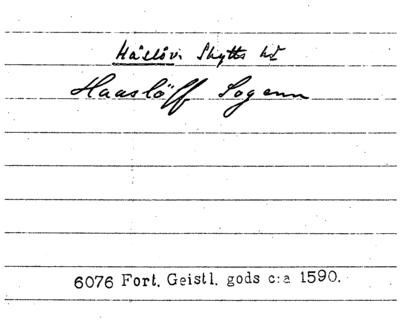 Håslöv. Skytts hd
Haaslöff Sogenn
6076 Fort. Geistl. gods c:a 1590.